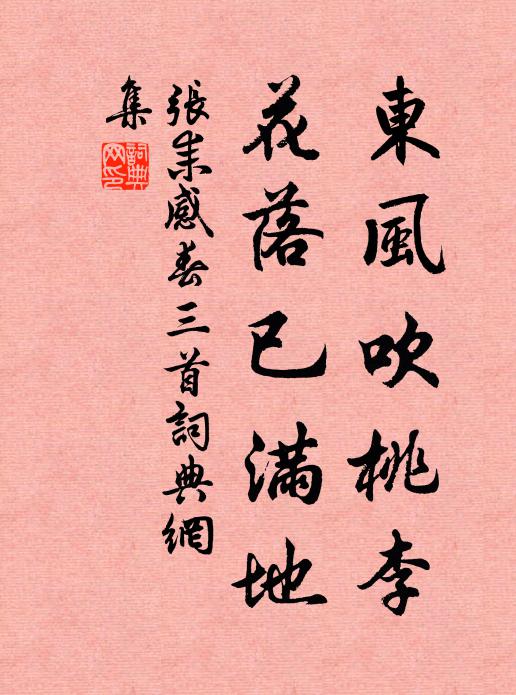 東風吹桃李
花落已满地
張耒感春三首詞典網
集
詞典網印